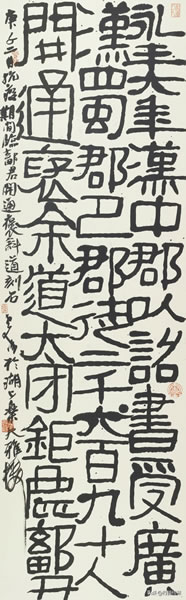 永平六年漢中郡以詔書受廣
漢蜀郡巴郡徒二千六百九十人
開通褒余道太守鉅鹿鄐君
庚子二月抗疫期間臨鄐君開通褒斜道刻石 於湖上